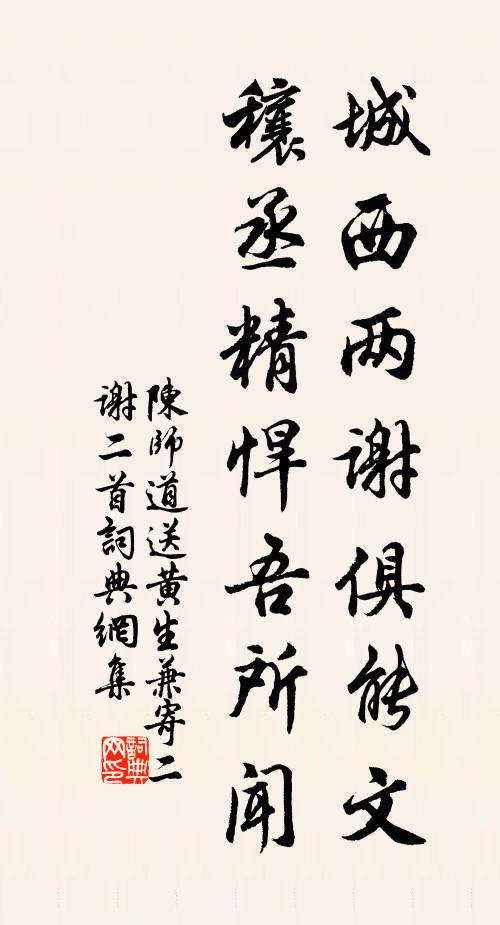 城西两谢俱能文
穰丞精悍吾所闻
陳師道送黄生兼寄二
謝二首詞典網集
詞典网印